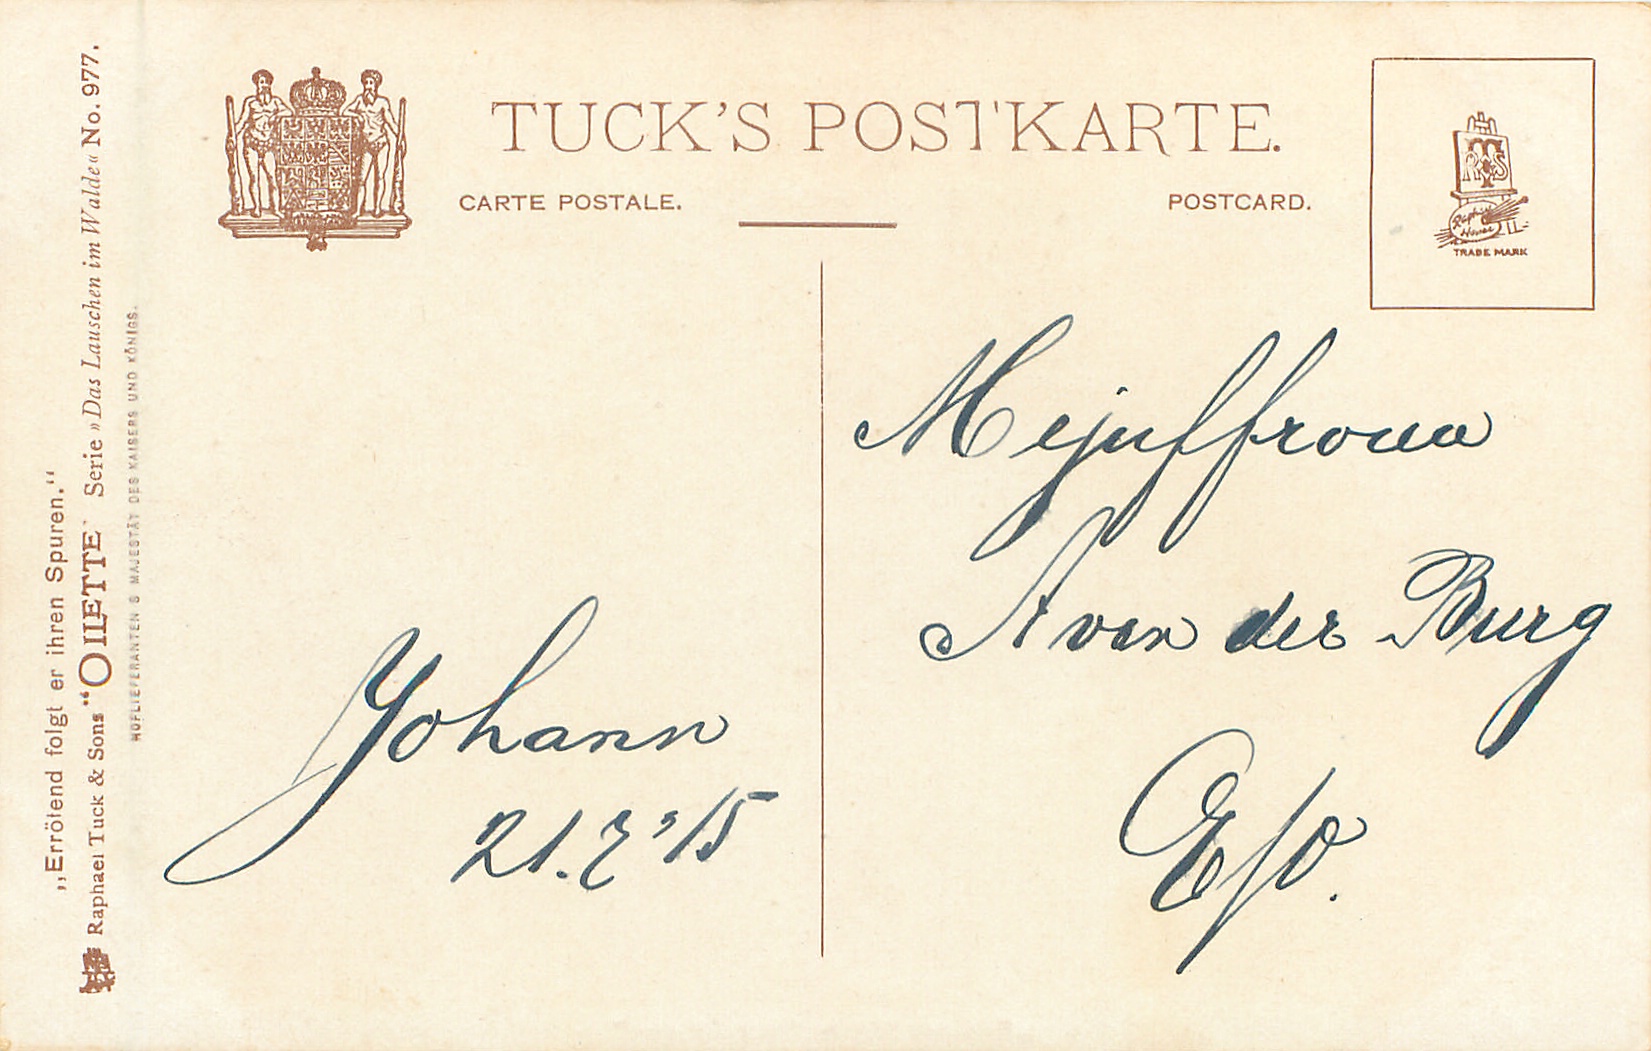 „Errötend folgt er ihren Spuren.“
Raphael Tuck & Sons “OILETTE” Serie »Das Lauschen im Walde« No. 977.
HOFLIEFERANTEN S MAJESTÄT DES KAISERS UND KÖNIGS.
TUCK’S POSTKARTE.
CARTE POSTALE.
POSTCARD.
RTS
Raphael House
TRADE MARK
Johann
21.7’15
Mejuffrouw
A van der Burg
E/o.